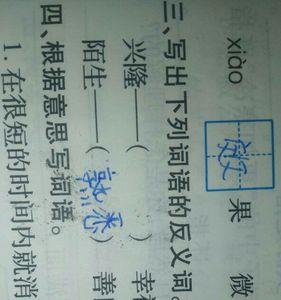 xiào 效 果 微
三、写出下列词语的反义词。
兴隆——（ ） 幸
陌生——（熟悉） 善
四、根据意思写词语。
1. 在很短的时间内就消